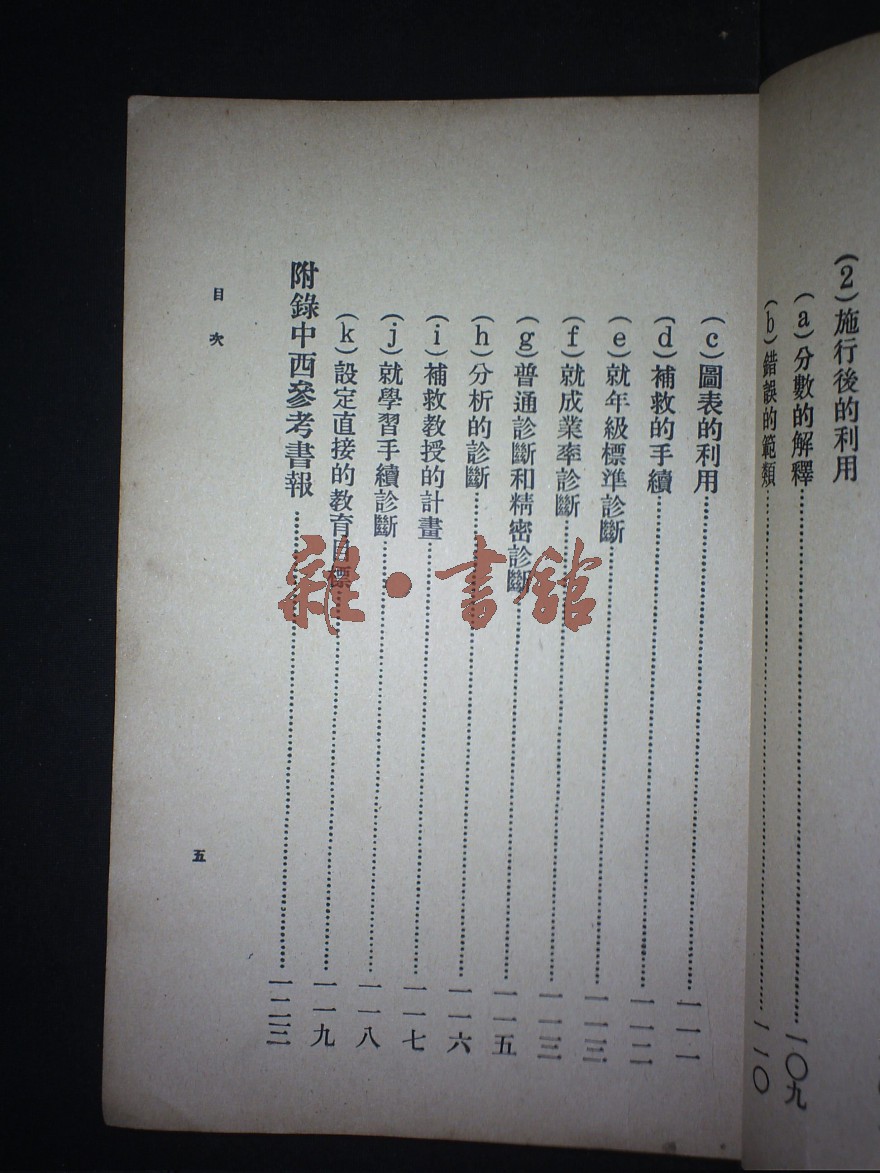 (2)施行後的利用
(a)分數的解釋……一〇九
(b)錯誤的範類……一一〇
(c)圖表的利用……一一一
(d)補救的手續……一一二
(e)就年級標準診斷……一一三
(f)就成業率診斷……一一三
(g)普通診斷和精密診斷……一一五
(h)分析的診斷……一一六
(i)補救教授的計畫……一一七
(j)就學習手續診斷……一一八
(k)設定直接的教育目標……一一九
附錄中西參考書報……一二三
目次
五
雜·書館